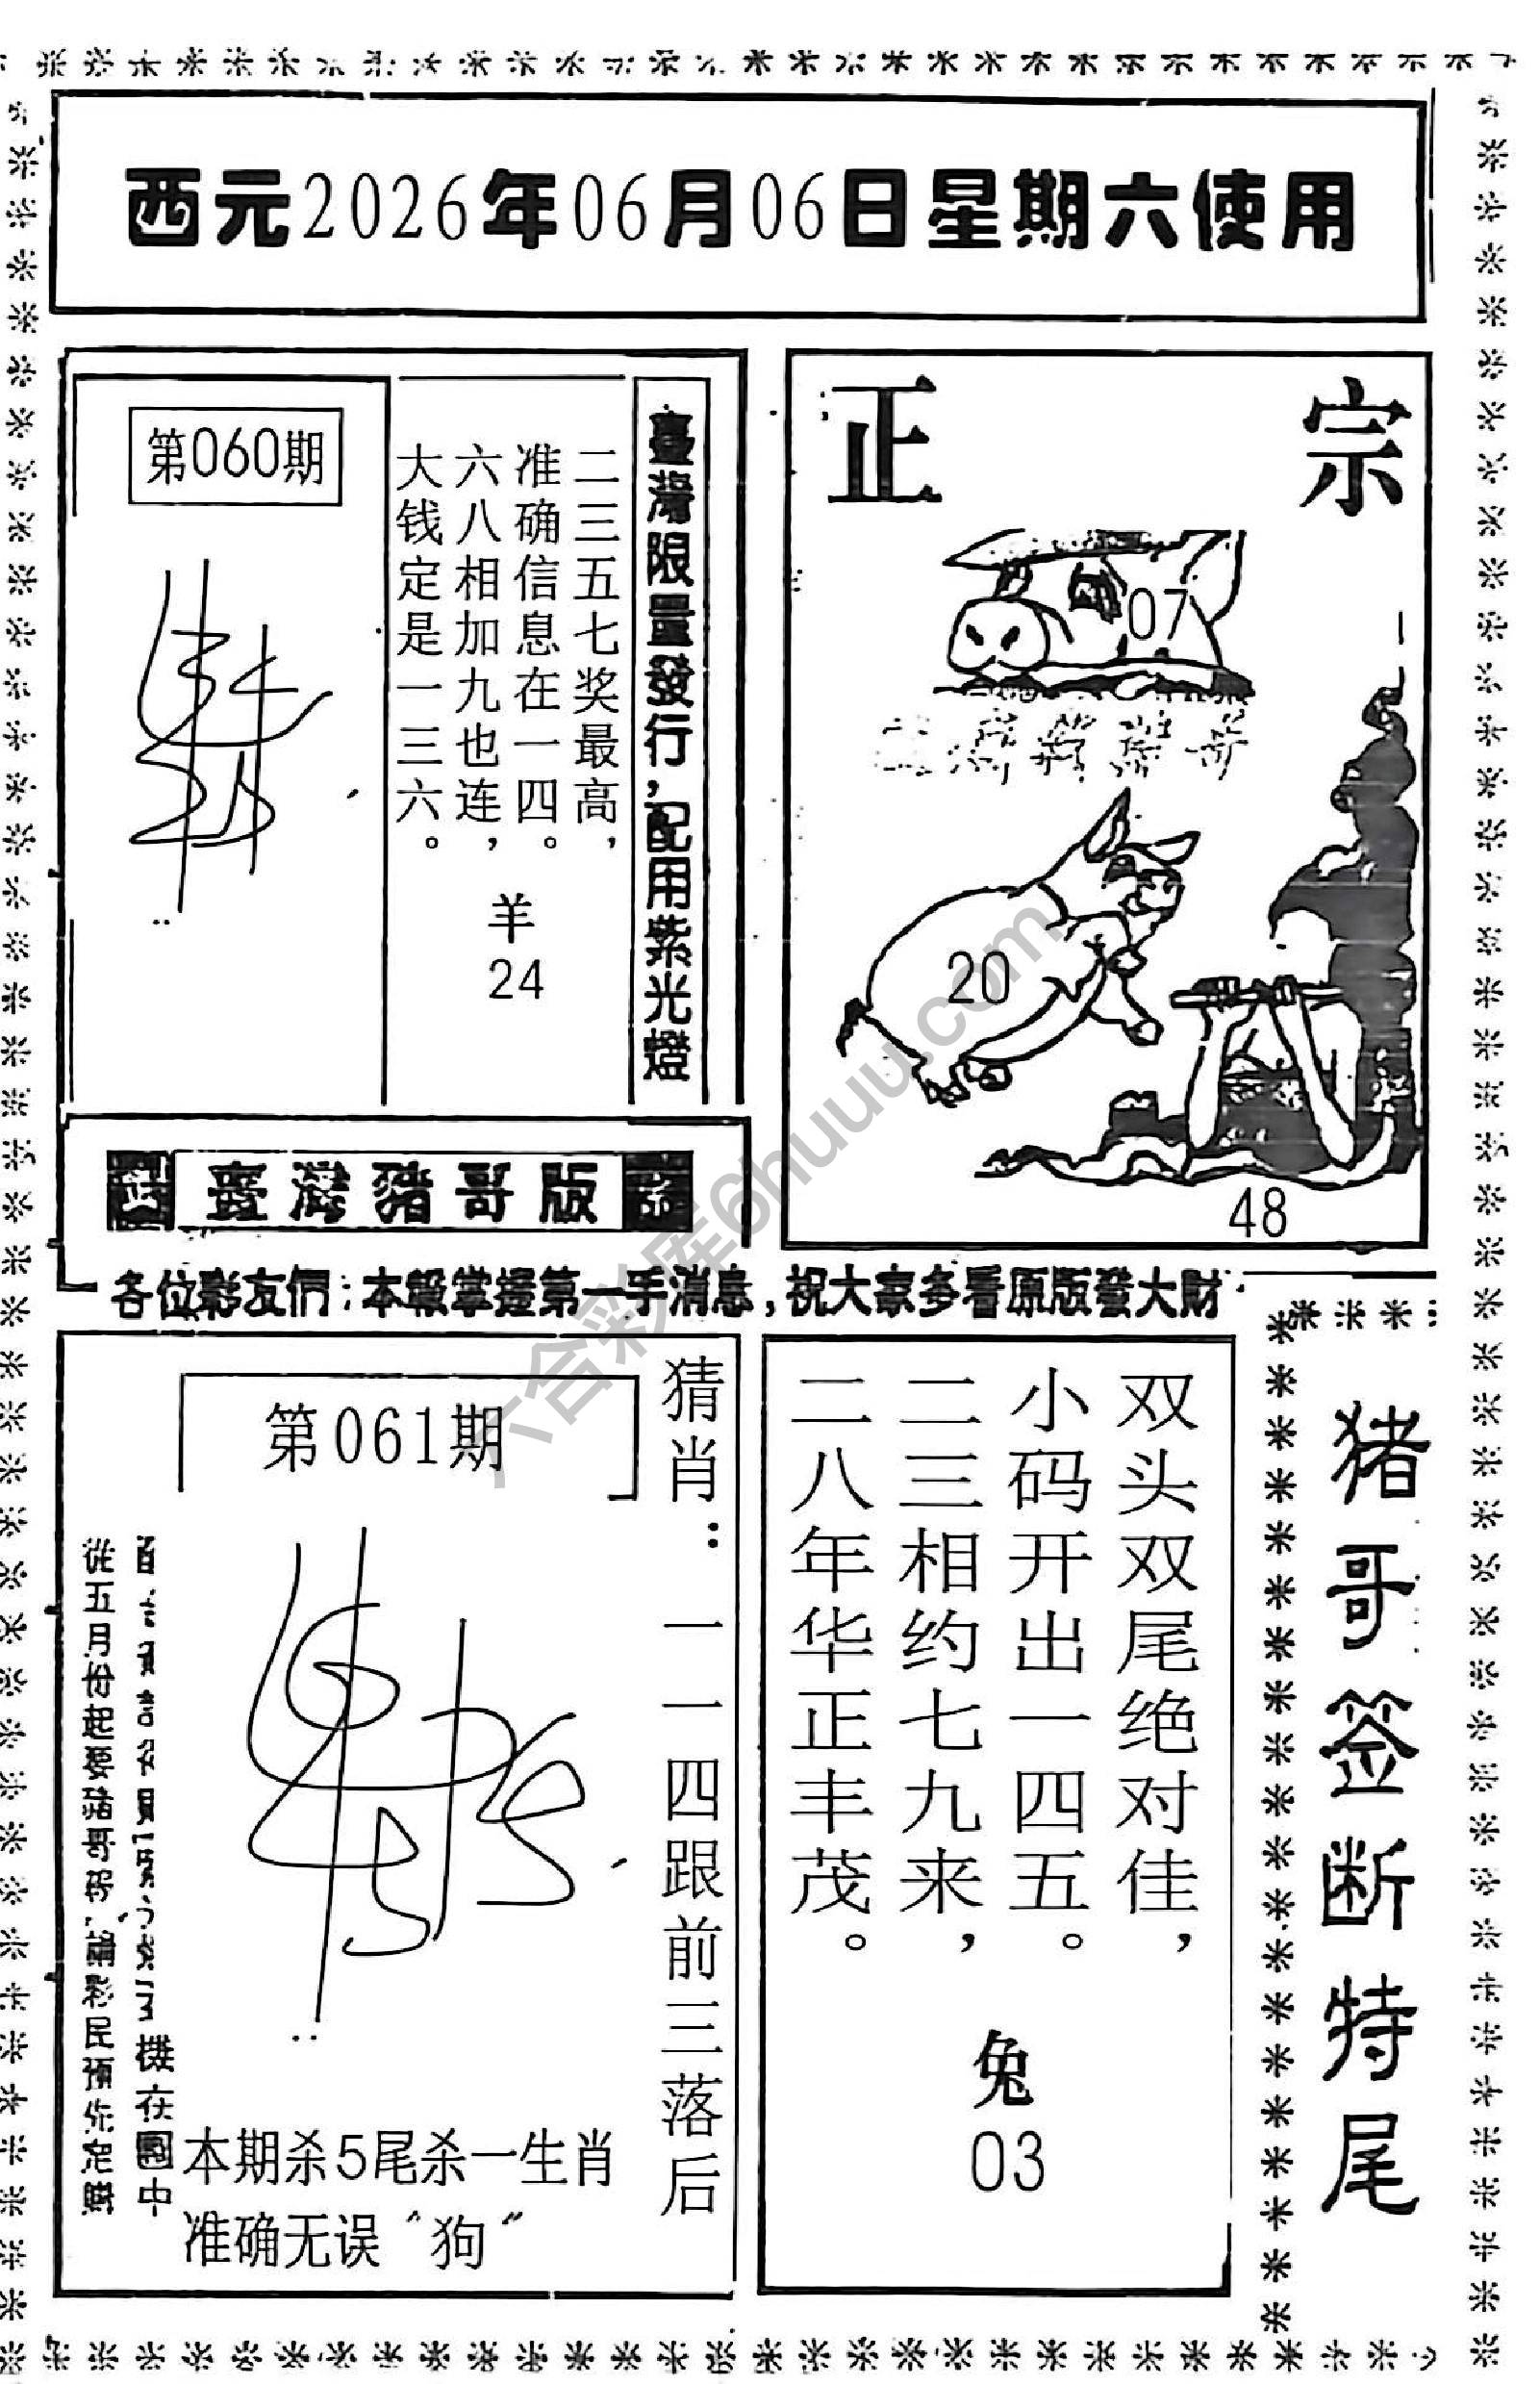 西元2026年06月06日星期六使用
第060期
臺灣限量發行,配用紫光燈
二三五七奖最高，
准确信息在一四。
六八相加九也连，
大钱定是一三六。
羊
24
正宗
07
20
48
臺灣豬哥版
各位彩友們:本報掌握第一手消息,祝大家多看原版發大財
第061期
猜肖：一一四跟前三落后
從五月份起要豬哥
彩民預先定購
機在國中
本期杀5尾杀一生肖
准确无误〝狗〞
双头双尾绝对佳，
小码开出一四五。
二三相约七九来，
二八年华正丰茂。
兔
03
猪哥签断特尾
六合彩库6huuu.com